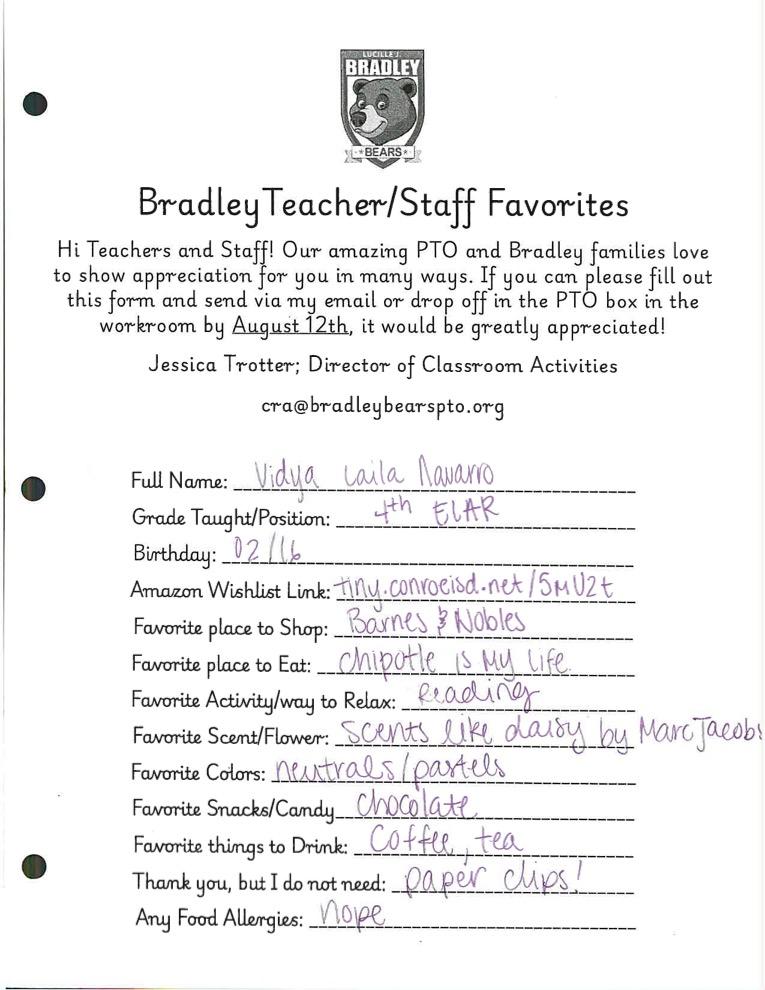 LUCILLE J.
BRADLEY
★BEARS★
Bradley Teacher/Staff Favorites
Hi Teachers and Staff! Our amazing PTO and Bradley families love
to show appreciation for you in many ways. If you can please fill out
this form and send via my email or drop off in the PTO box in the
workroom by August 12th, it would be greatly appreciated!
Jessica Trotter; Director of Classroom Activities
cra@bradleybearspto.org
Full Name: Vidya Laila Navarro
Grade Taught/Position: 4th ELAR
Birthday: 02/16
Amazon Wishlist Link: tiny.conroeisd.net/5MU2t
Favorite place to Shop: Barnes & Nobles
Favorite place to Eat: Chipotle is my life
Favorite Activity/way to Relax: Reading
Favorite Scent/Flower: Scents like daisy by Marc Jacobs
Favorite Colors: neutrals/pastels
Favorite Snacks/Candy Chocolate
Favorite things to Drink: Coffee, tea
Thank you, but I do not need: paper clips!
Any Food Allergies: Nope